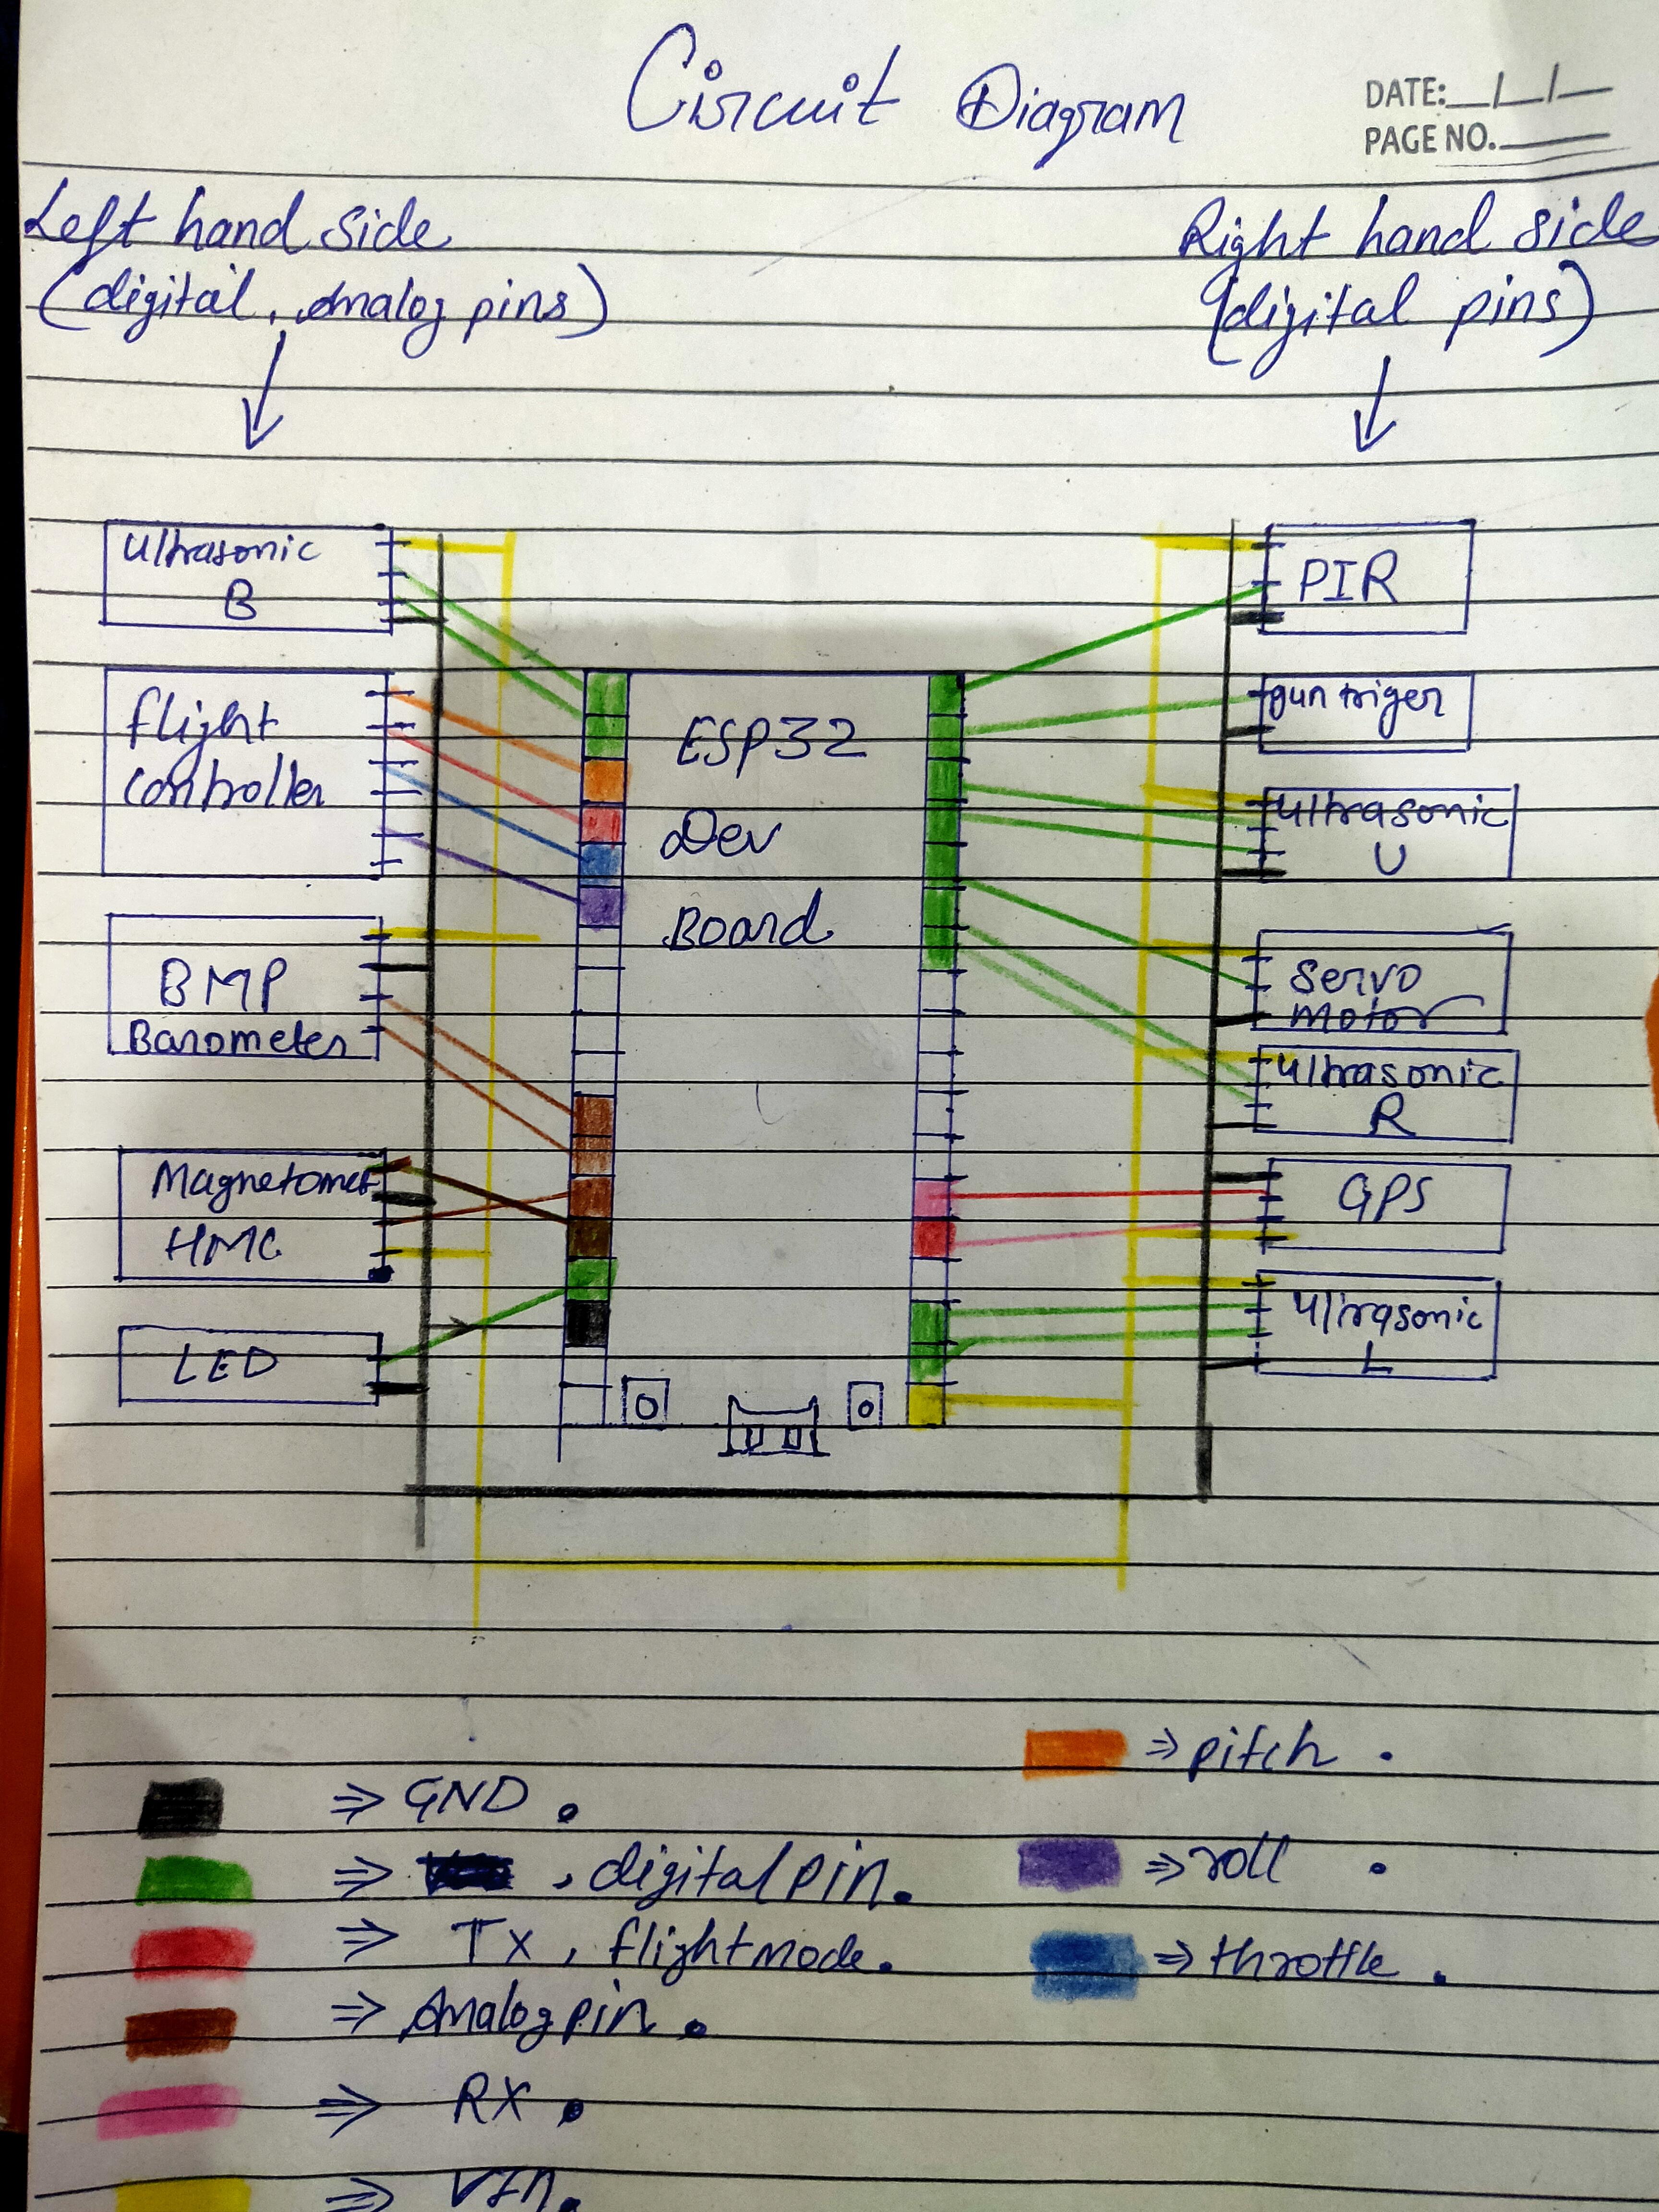 Circuit Diagram
DATE:__/__/__
PAGE NO.
Left hand side
(digital, Analog pins)
Right hand side
(digital pins)
Ultrasonic
B
flight
controller
BMP
Barometer
Magnetomet
HMC
LED
ESP32
Dev
Board
PIR
gun triger
Ultrasonic
U
Servo
motor
Ultrasonic
R
GPS
Ultrasonic
L
⇒ GND .
⇒ , digital pin.
⇒ Tx, flightmode.
⇒ Analog pin.
⇒ RX .
⇒ VIN.
⇒ pitch .
⇒ roll .
⇒ throttle .